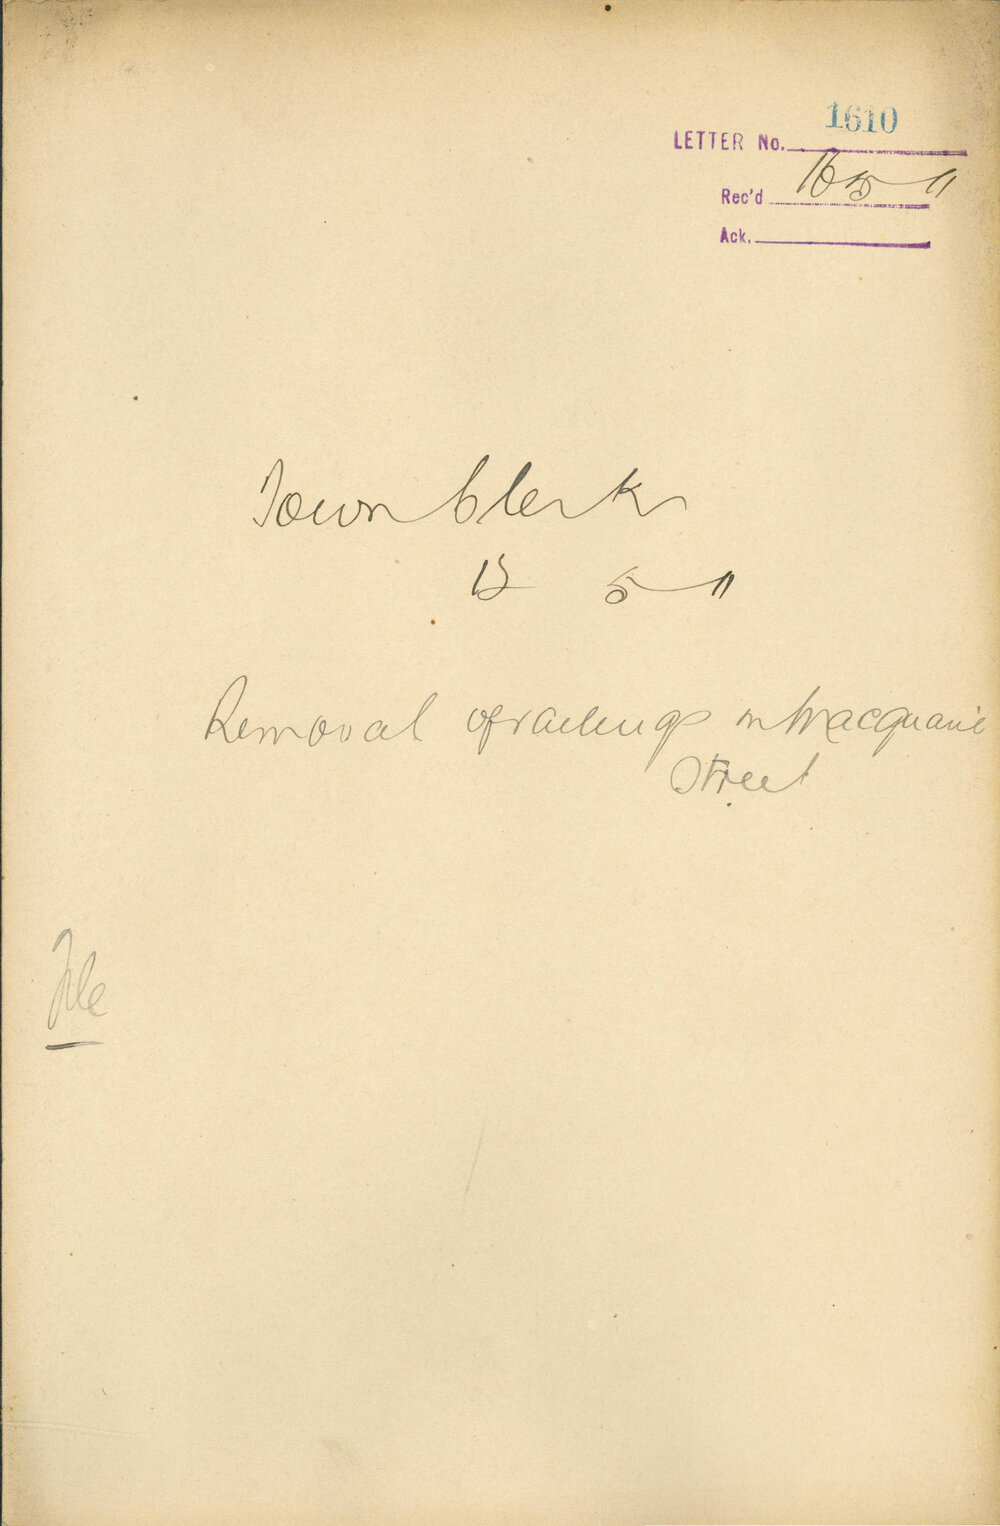 1610
LETTER No.
Rec'd 16 5 11
Ack.
Town Clerk
15 5 11
Removal of railings in Macquarie
Street
File